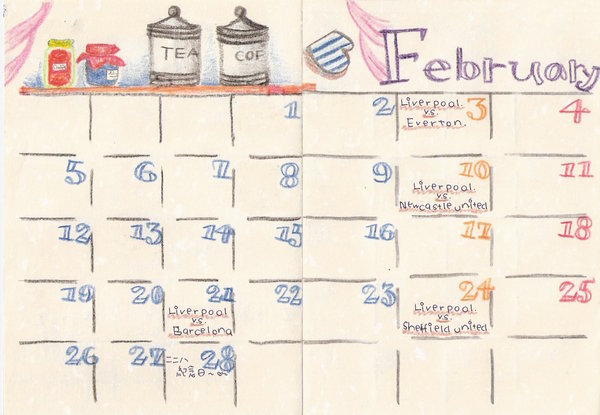 TEA
COF
February
1
2
Liverpool
vs.
Everton.
3
4
5
6
7
8
9
10
Liverpool
vs.
Newcastle united
11
12
13
14
15
16
17
18
19
20
21
Liverpool
vs.
Barcelona
22
23
24
Liverpool
vs.
Sheffield united
25
26
27
28
二二八
紀念日